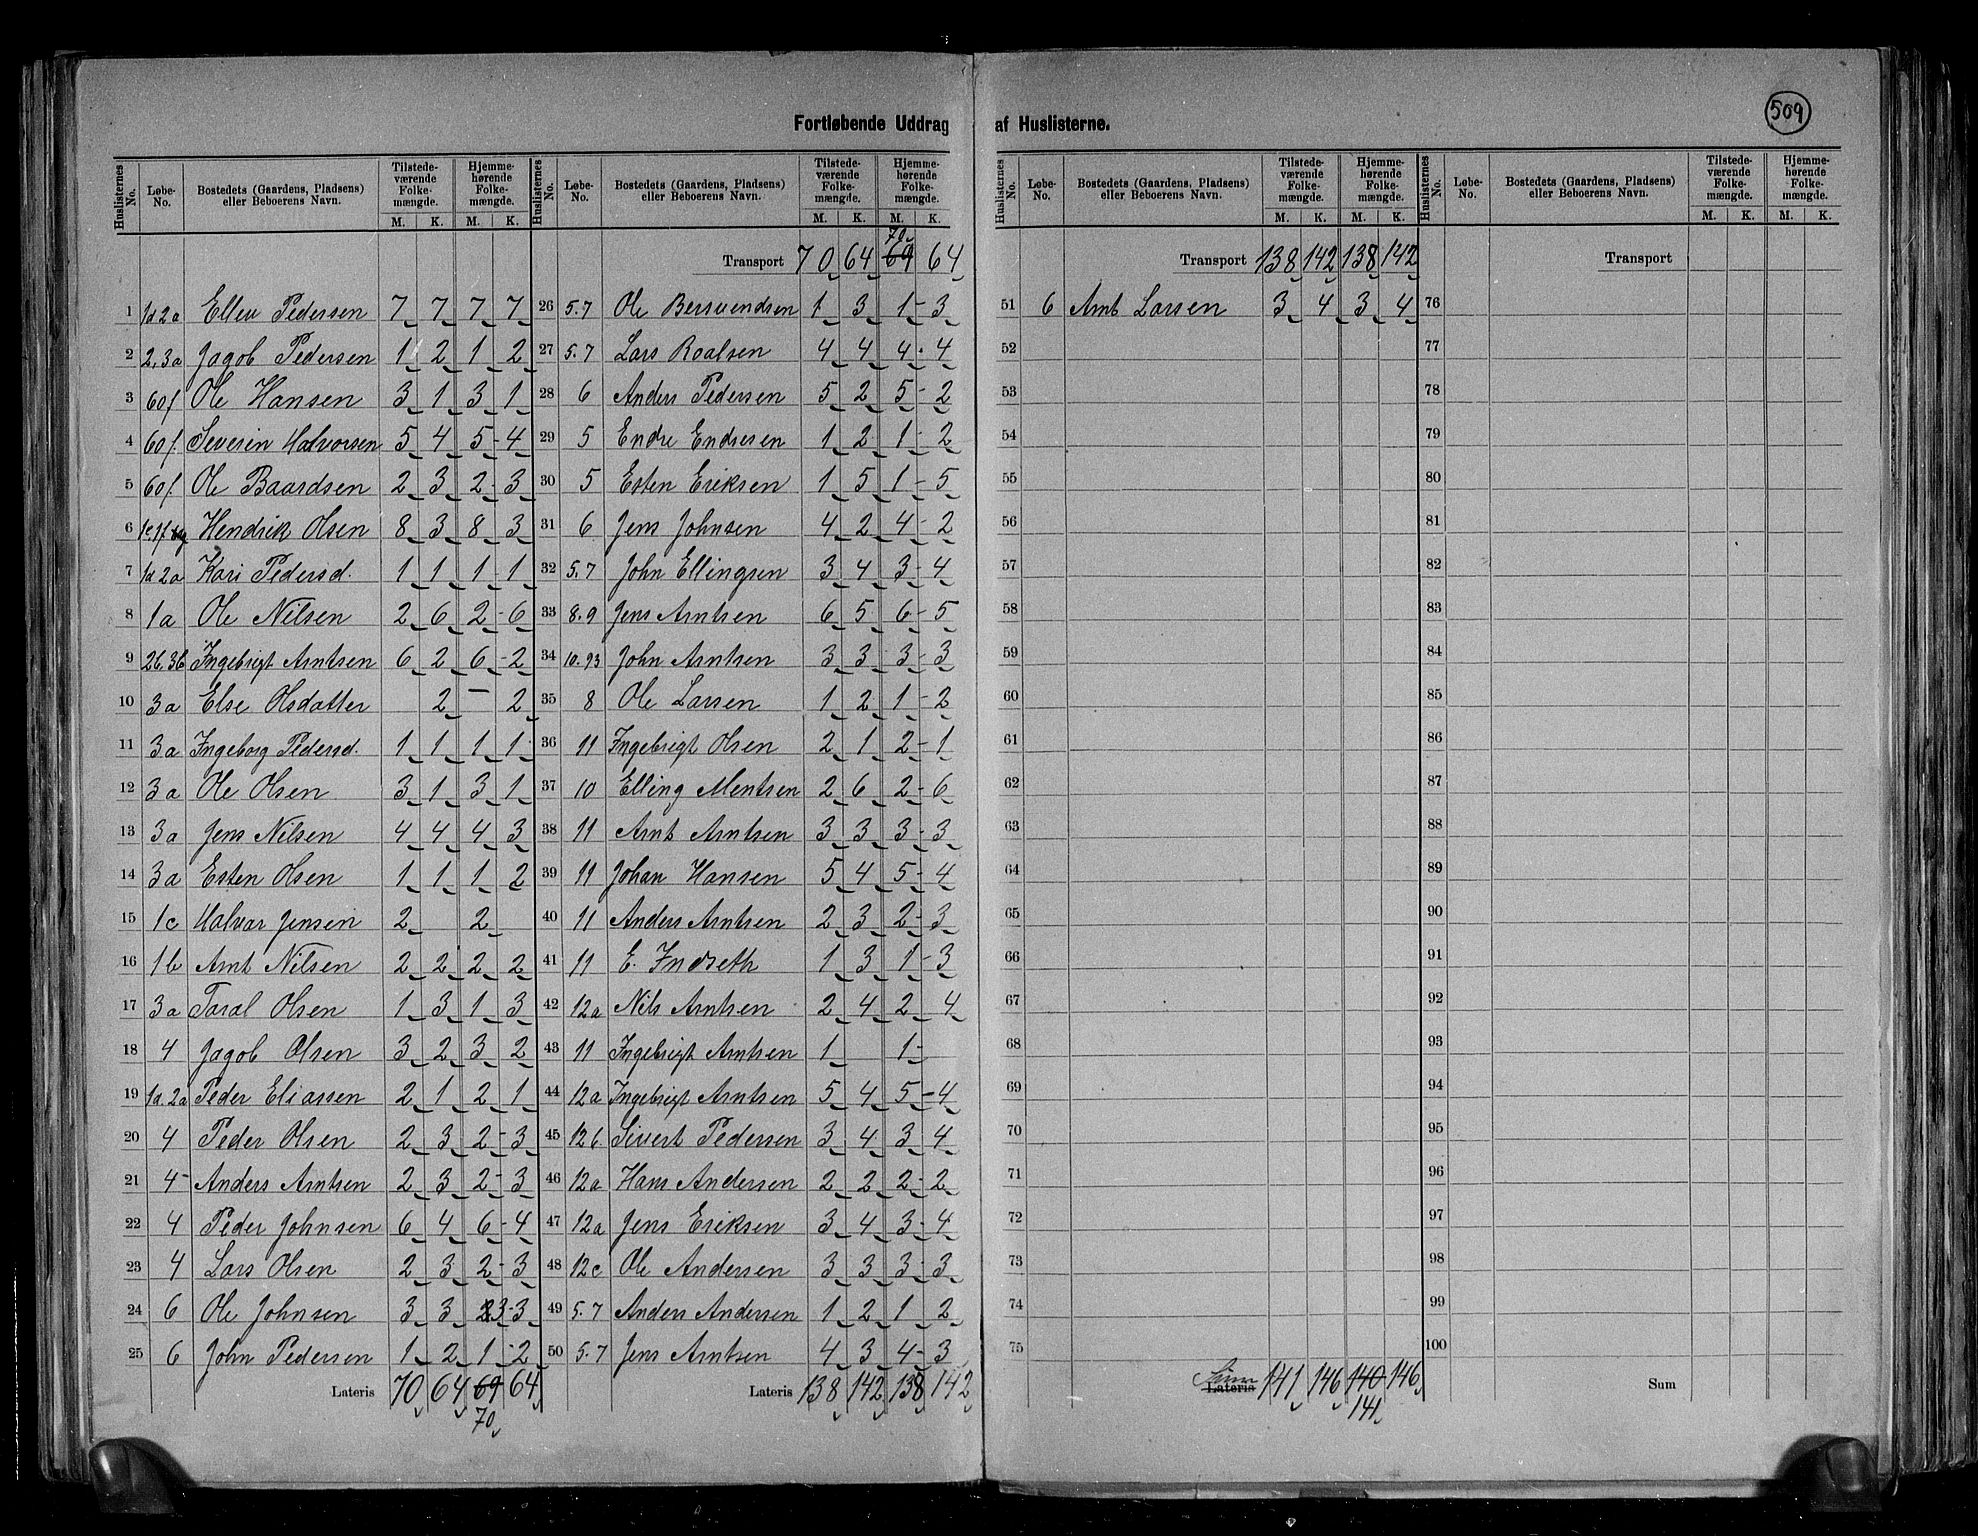 509
Fortløbende Uddrag af Huslisterne.
Huslisternes No. Løbe-No. Bostedets (Gaardens, Pladsens) eller Beboerens Navn. Tilstede-værende Folke-mængde. M. K. Hjemme-hørende Folke-mængde. M. K.
1 1d 2a Ellen Pedersen 7 7 7 7
2 2,3a Jagob Pedersen 1 2 1 2
3 60f Ole Hansen 3 1 3 1
4 60f. Severin Halvorsen 5 4 5-4
5 60f. Ole Baardsen 2 3 2-3
6 Hendrik Olsen 8 3 8 3
7 1d 2a Kari Pedersd. 1 1 1-1
8 1a Ole Nilsen 2 6 2-6
9 2b.3b Ingebrigt Arntsen 6 2 6-2
10 3a Else Olsdatter 2 – 2
11 3a Ingeborg Pedersd. 1 1 1 1
12 3a Ole Olsen 3 1 3 1
13 3a Jens Nilsen 4 4 4 3
14 3a Esten Olsen 1 1 1 2
15 1c Halvar Jensen 2 2
16 1b Arnt Nilsen 2 2 2 2
17 3a Taral Olsen 1 3 1 3
18 4 Jagob Olsen 3 2 3 2
19 1d.2a Peder Eliassen 2 1 2 1
20 4 Peder Olsen 2 3 2-3
21 4 Anders Arntsen 2 3 2-3
22 4 Peder Johnsen 6 4 6-4
23 4 Lars Olsen 2 3 2-3
24 6 Ole Johnsen 3 3 2 3-3
25 6 John Pedersen 1 2 1-2
Lateris 70 64 69 64
70
Huslisternes No. Løbe-No. Bostedets (Gaardens, Pladsens) eller Beboerens Navn. Tilstede-værende Folke-mængde. M. K. Hjemme-hørende Folke-mængde. M. K.
70
Transport 70 64 69 64
26 5.7 Ole Bersvendsen 1 3 1-3
27 5.7 Lars Roalsen 4 4 4-4
28 6 Anders Pedersen 5 2 5-2
29 5 Endre Endresen 1 2 1-2
30 5 Esten Eriksen 1 5 1-5
31 6 Jens Johnsen 4 2 4-2
32 5.7 John Ellingsen 3 4 3-4
33 8.9 Jens Arntsen 6 5 6-5
34 10.93 John Arntsen 3 3 3-3
35 8 Ole Larsen 1 2 1-2
36 11 Ingebrigt Olsen 2 1 2-1
37 10 Elling Mentsen 2 6 2-6
38 11 Arnt Arntsen 3 3 3-3
39 11 Johan Hansen 5 4 5-4
40 11 Anders Arntsen 2 3 2-3
41 11 E. Indseth 1 3 1-3
42 12a Nils Arntsen 2 4 2 4
43 11 Ingebrigt Arntsen 1 1-
44 12a Ingebrigt Arntsen 5 4 5-4
45 12b Sivert Pedersen 3 4 3 4
46 12a Hans Andersen 2 2 2-2
47 12a Jens Eriksen 3 4 3-4
48 12c Ole Andersen 3 3 3-3
49 5.7 Anders Andersen 1 2 1 2
50 5.7 Jens Arntsen 4 3 4-3
Lateris 138 142 138 142
Huslisternes No. Løbe-No. Bostedets (Gaardens, Pladsens) eller Beboerens Navn. Tilstede-værende Folke-mængde. M. K. Hjemme-hørende Folke-mængde. M. K.
Transport 138 142 138 142
51 6 Arnt Larsen 3 4 3 4
52
53
54
55
56
57
58
59
60
61
62
63
64
65
66
67
68
69
70
71
72
73
74
75
Sum
Lateris 141 146 140 146
141
Huslisternes No. Løbe-No. Bostedets (Gaardens, Pladsens) eller Beboerens Navn. Tilstede-værende Folke-mængde. M. K. Hjemme-hørende Folke-mængde. M. K.
Transport
76
77
78
79
80
81
82
83
84
85
86
87
88
89
90
91
92
93
94
95
96
97
98
99
100
Sum